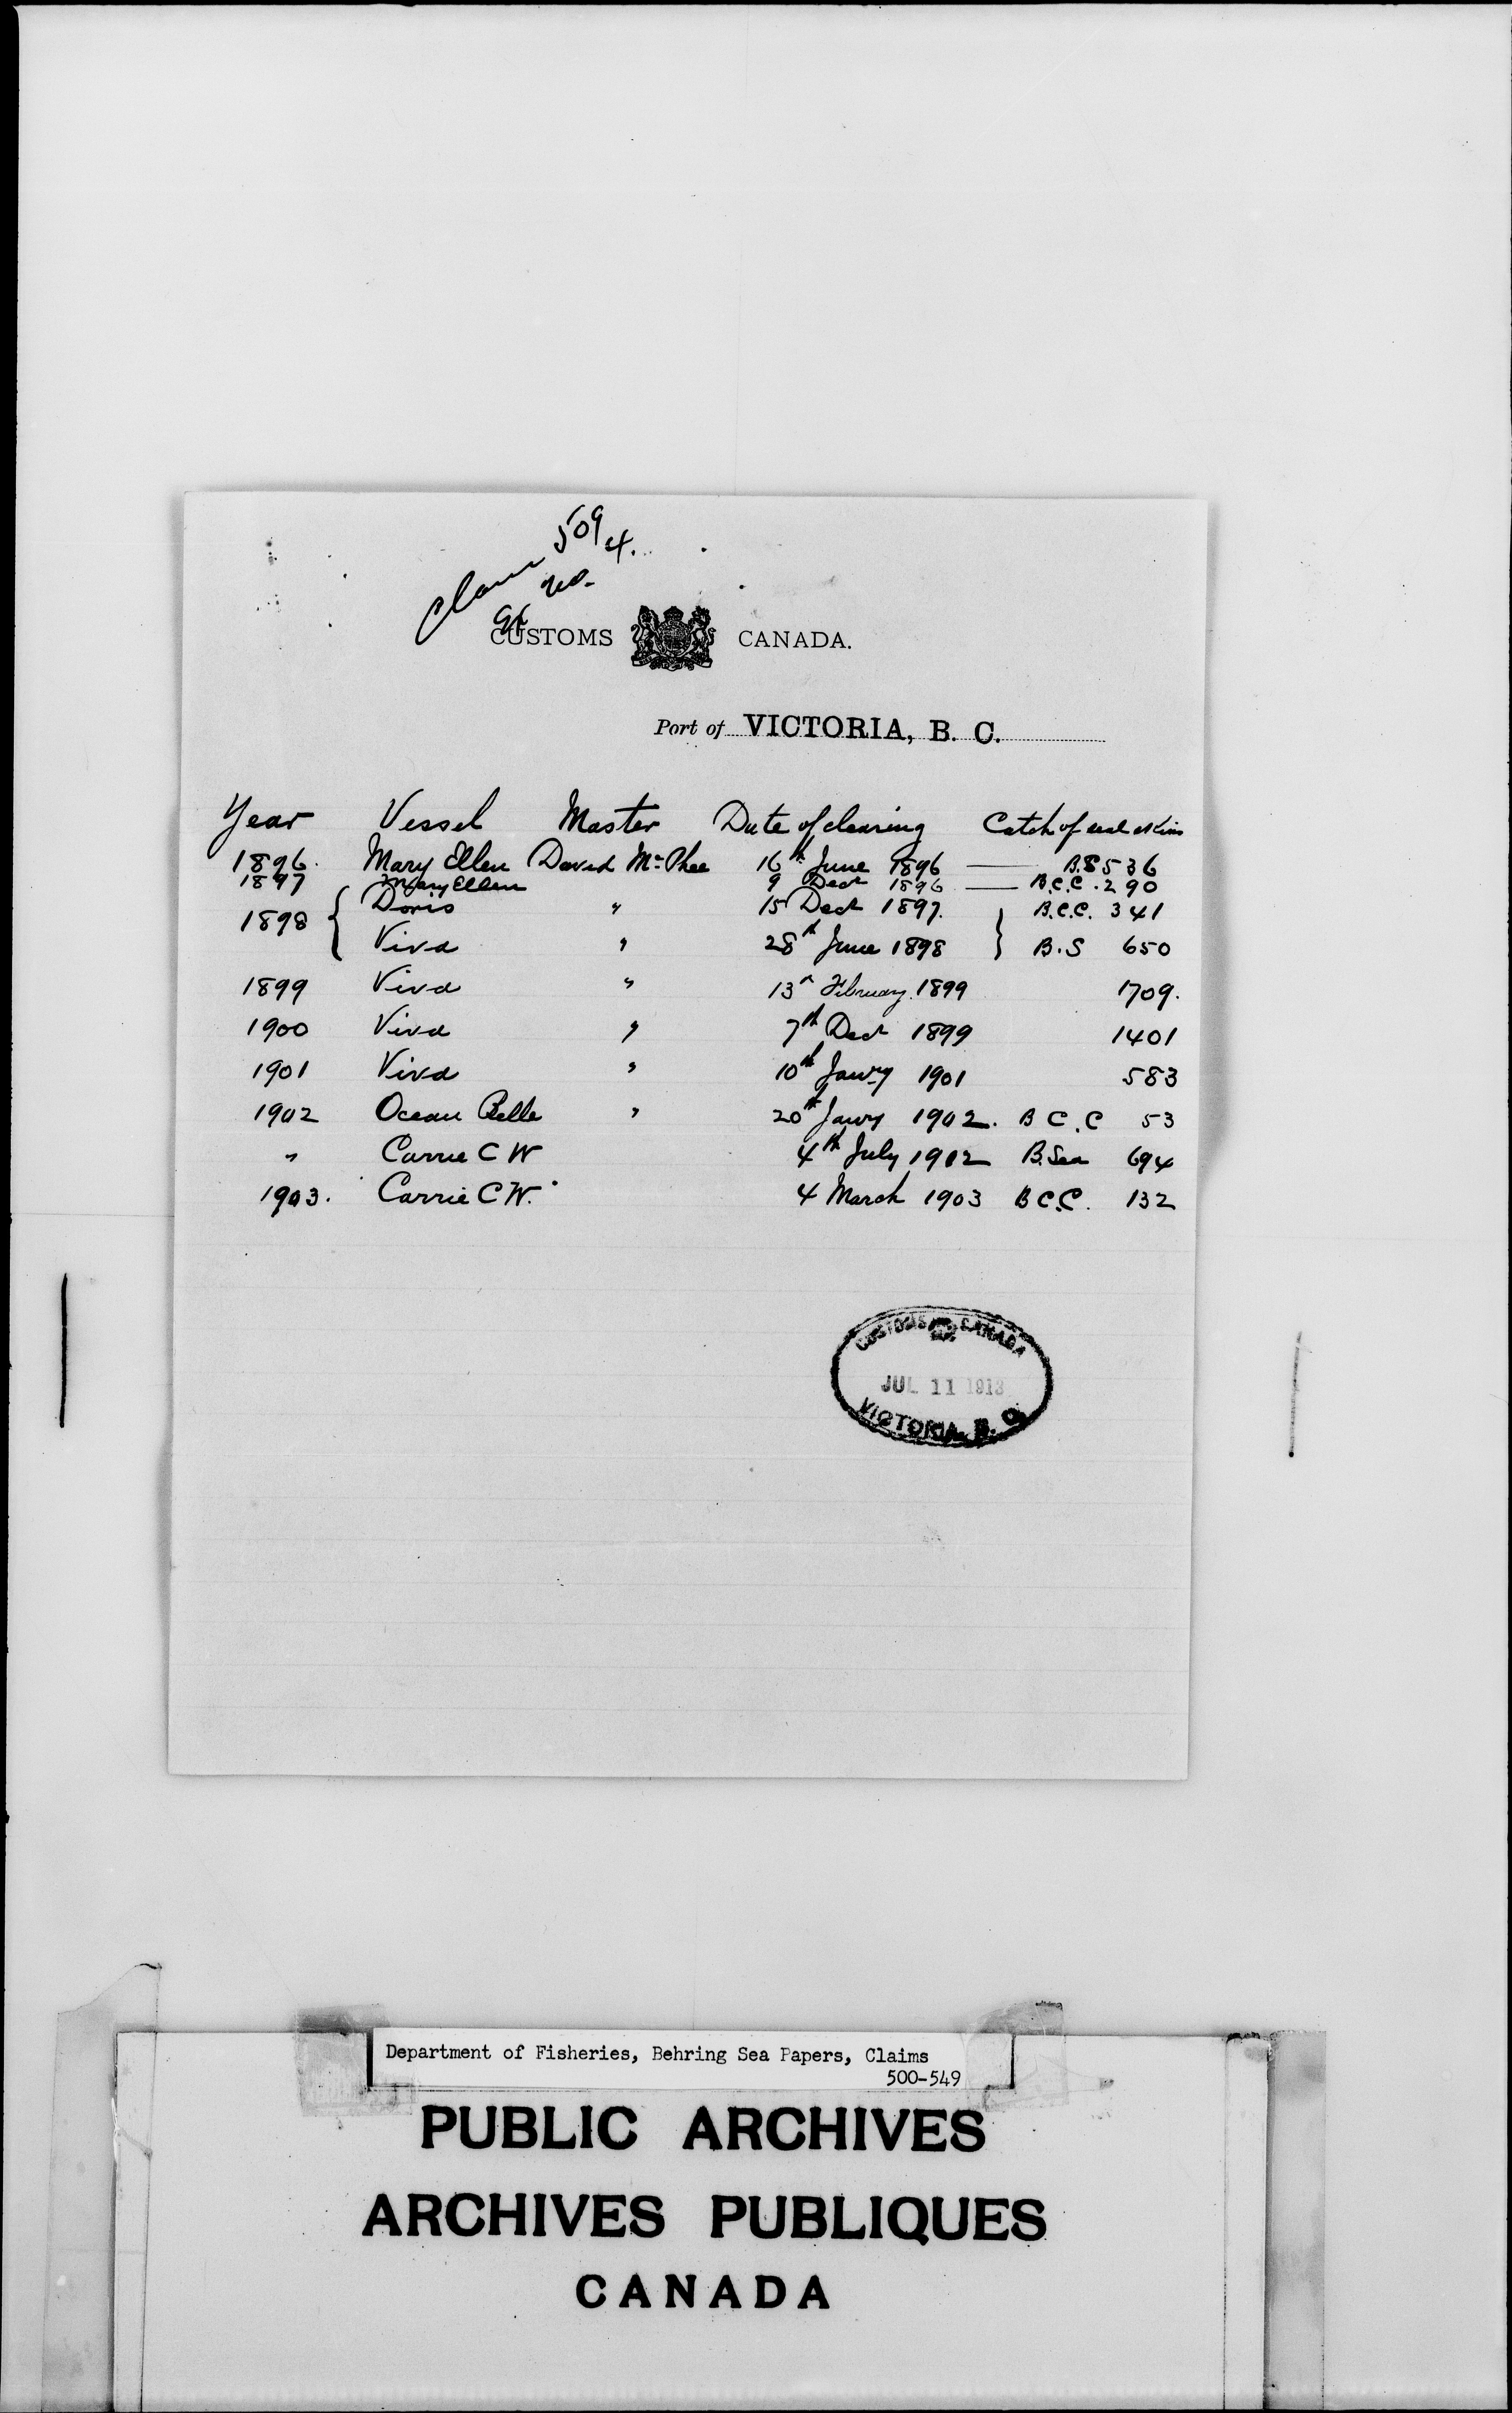 Claim 509
4.
CUSTOMS CANADA.
Port of VICTORIA, B. C.
Year Vessel Master Date of clearing Catch of seal skins
1896. Mary Ellen David McPhee 16th June 1896 — B.S 536
1897 Mary Ellen 9 Dect 1896 — B.C.C. 290
1898 { Doris " 15 Dect 1897. } B.C.C. 341
Viva " 28th June 1898 B.S 650
1899 Viva " 13th February 1899 1709.
1900 Viva " 7th Dect 1899 1401
1901 Viva " 10th Jawry 1901 583
1902 Ocean Belle " 20th Jawry 1902. B C.C 53
" Carrie C W 4th July 1902 B. Sea 694
1903. Carrie C W. 4 March 1903 B C.C. 132
CUSTOMS CANADA
JUL 11 1913
VICTORIA, B. C.
Department of Fisheries, Behring Sea Papers, Claims
500-549
PUBLIC ARCHIVES
ARCHIVES PUBLIQUES
CANADA